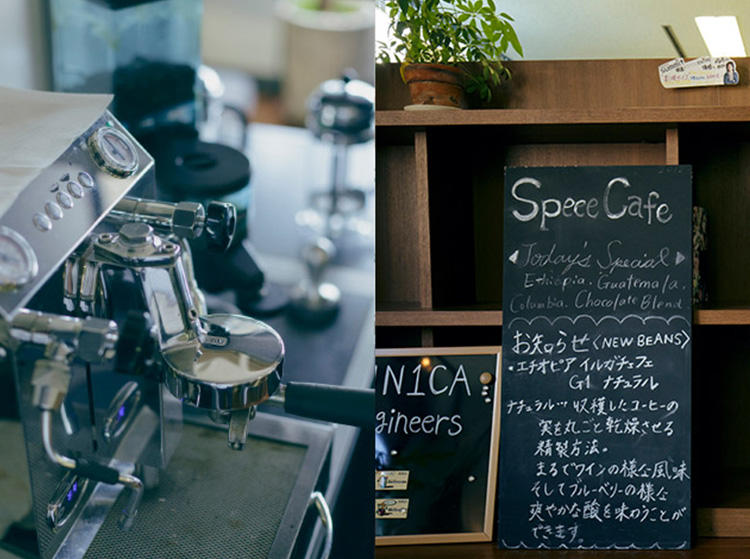 Speee Cafe
Today's Special
Ethiopia. Guatemala.
Columbia. Chocolate Blend
お知らせ〈NEW BEANS〉
・エチオピア イルガチェフェ
G1 ナチュラル
ナチュラル…収穫したコーヒーの
実を丸ごと乾燥させる
精製方法。
まるでワインの様な風味
そしてブルーベリーの様な
爽やかな酸を味わうことが
できます。
N1CA
gineers